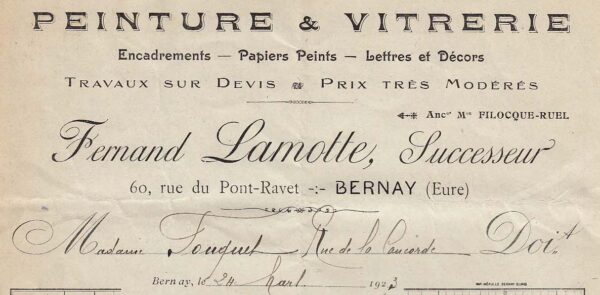 PEINTURE & VITRERIE
Encadrements — Papiers Peints — Lettres et Décors
TRAVAUX SUR DEVIS PRIX TRÈS MODÉRÉS
Anc.ne M.on FILOCQUE-RUEL
Fernand Lamotte, Successeur
60, rue du Pont-Ravet -:- BERNAY (Eure)
Madame Fouquet Rue de la Concorde Doit
Bernay, le 24 Mars 1923